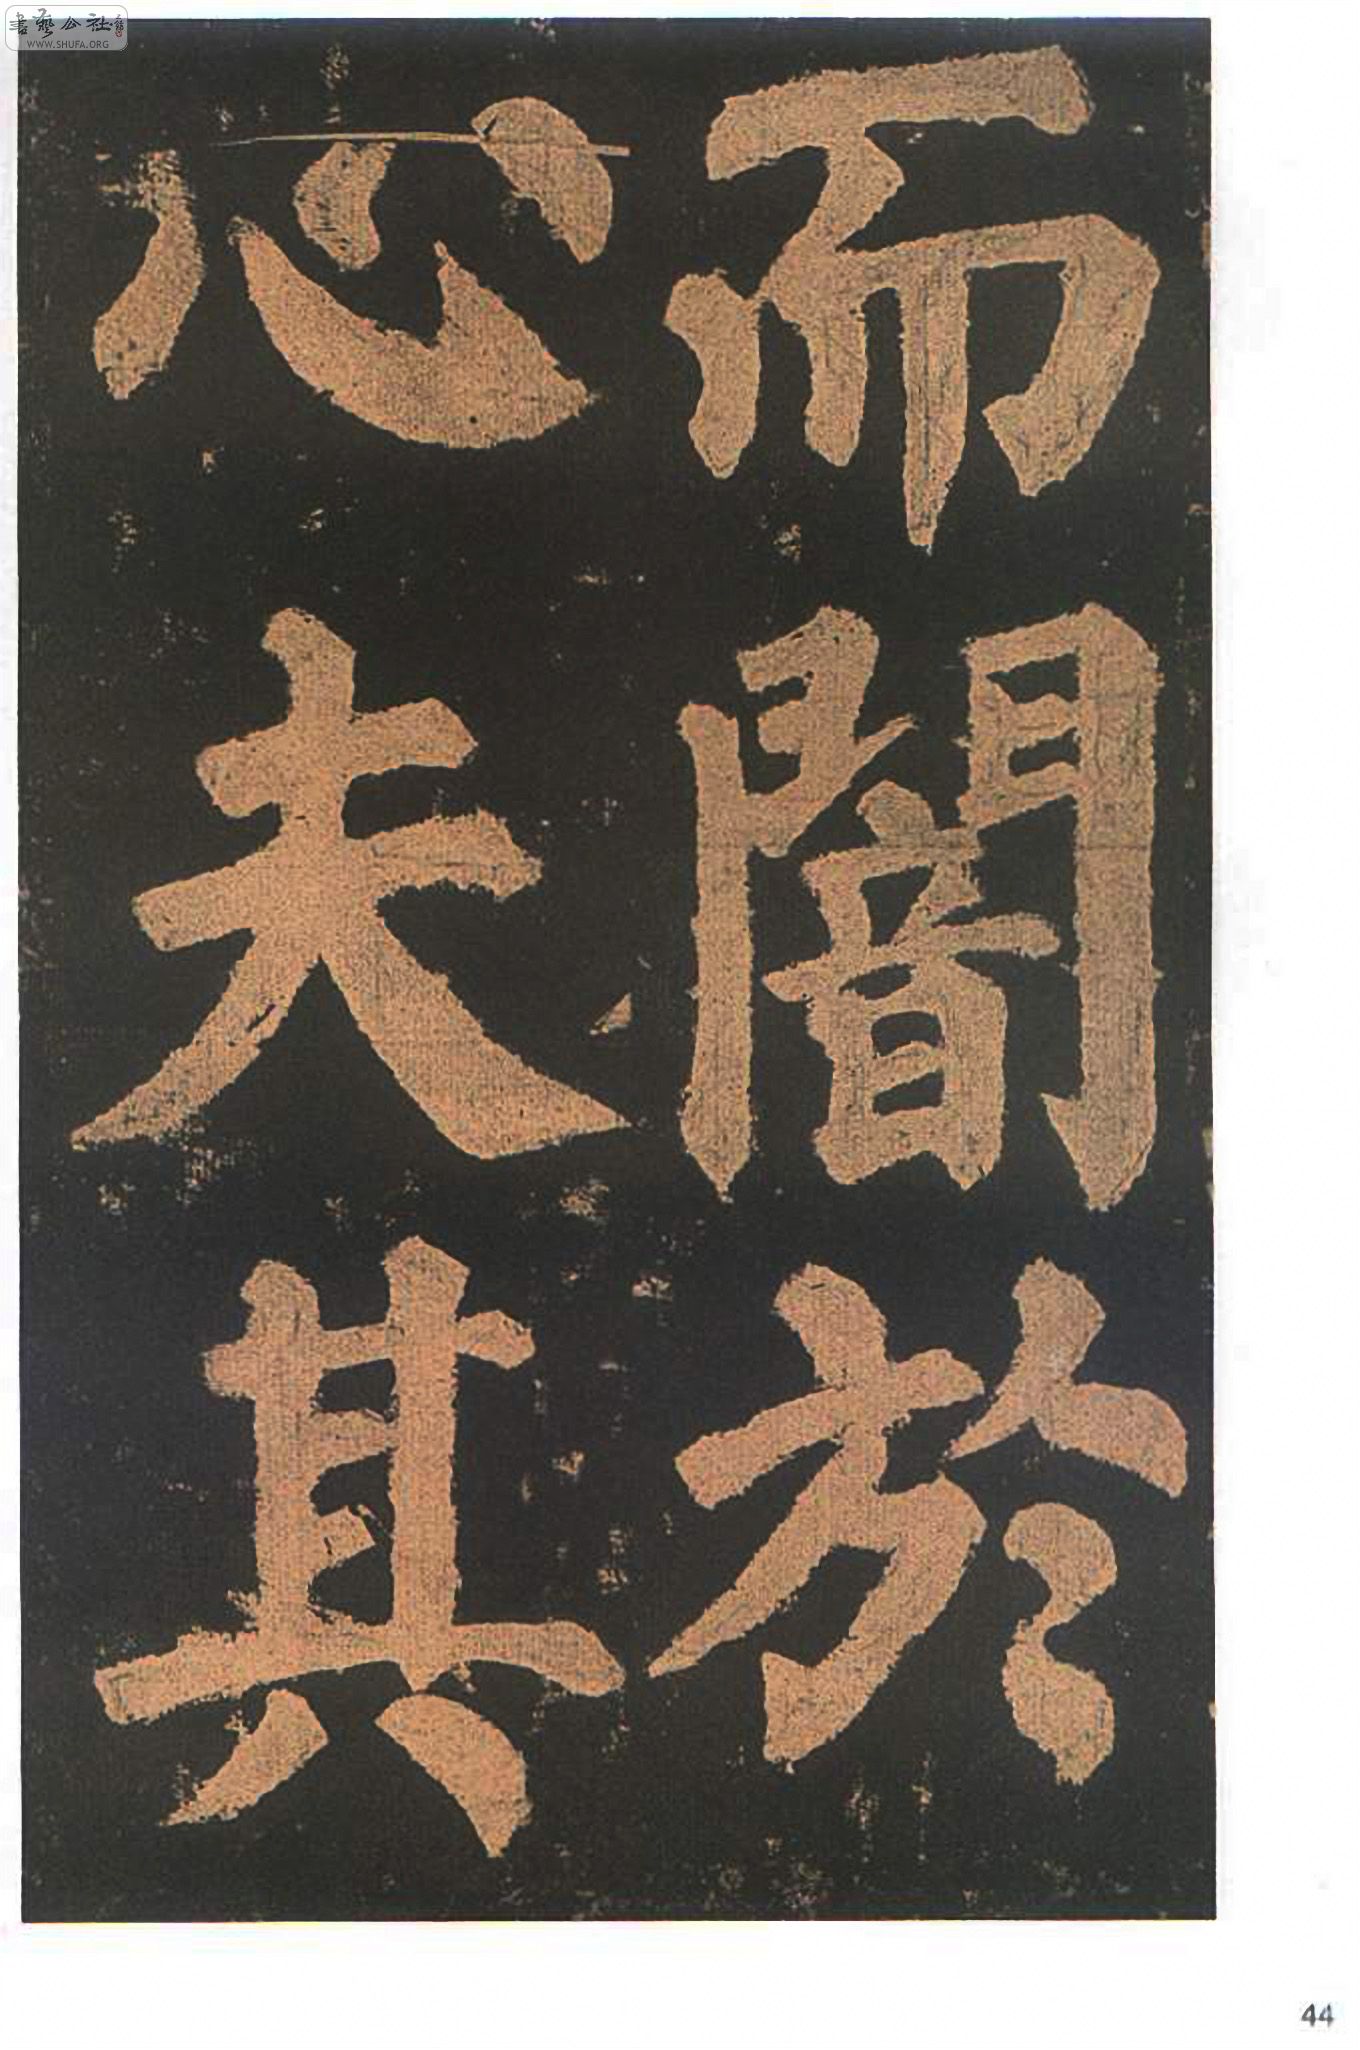 而闇於
心夫其
書藝公社
WWW.SHUFA.ORG
44